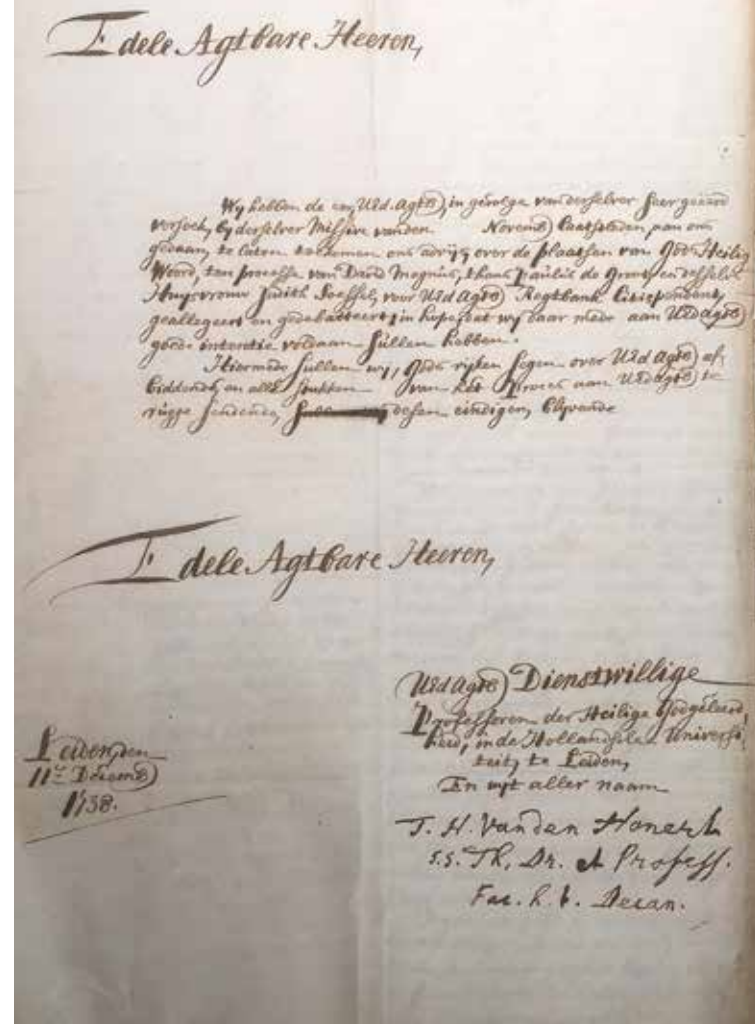 Edele Agtbare Heeren,
Wy hebben de eer, UEd. Agtb), in gevolge van derselver seer geëerd
versoek, by derselver Missive vanden Novemb) laatstleden aan ons
gedaan, te laten toekomen ons advys over de plaatsen van Gods Heilig
Woord, ten processe van David Magnus, thans Paulus de Groot en desselfs
Huysvrouw Judith Soessel, voor UEd Agtb) Regtbank litispendent,
geallegeert en gedebatteert, in hope, dat wy daar mede aan UEd agtb)
goede intentie voldaan sullen hebben.
Hiermede sullen wy, Gods ryken segen over UEd Agtb) af-
biddende, en alle stukken van het Proces aan UEd agtb) te
rugge sendende, desen eindigen, blyvende
Edele Agtbare Heeren,
UEd Agtb) Dienstwillige
Professoren der Heilige Godgeleerd-
heid, in de Hollandsche Universi-
teit, te Leiden,
En uyt aller naam
T. H. Van den Honert
S.S. Th. Dr. et Profess.
Fac. h. t. Decan.
Leiden, den
11e Decemb)
1738.